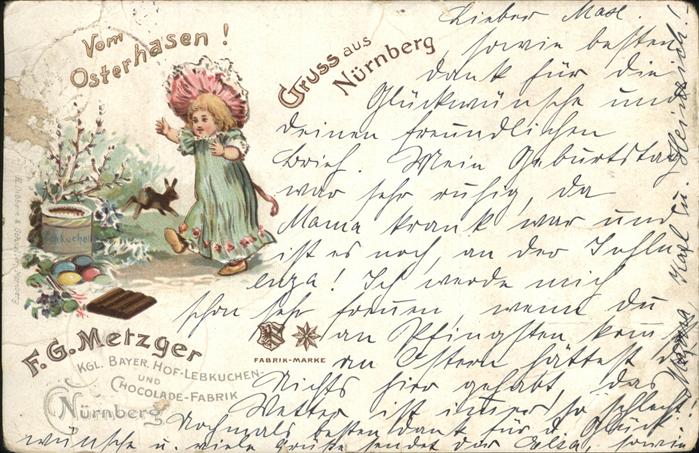 Vom
Osterhasen!
Gruss aus
Nürnberg
Lebkuchen
F. G. Metzger
Kgl. Bayer. Hof-Lebkuchen-
und
Chocolade-Fabrik
Nürnberg
Fabrik-Marke
Lieber Maxl.
sowie besten
dank für die
Glückwünsche und
deinen freundlichen
Brief. Mein Geburtstag
war sehr ruhig, da
Mama krank war und
ist es noch, an der Influ
enza! Ich werde mich
schon sehr freuen, wenn du
an Pfingsten kom
an Ostern hättest d
Nichts hier gehabt, das
Wetter ist immer so schlecht.
Nochmals besten dank für d. Glück-
wünsche u. viele Grüße sendet dir Elsa, sowie
Mama, Karl u. Heinrich!